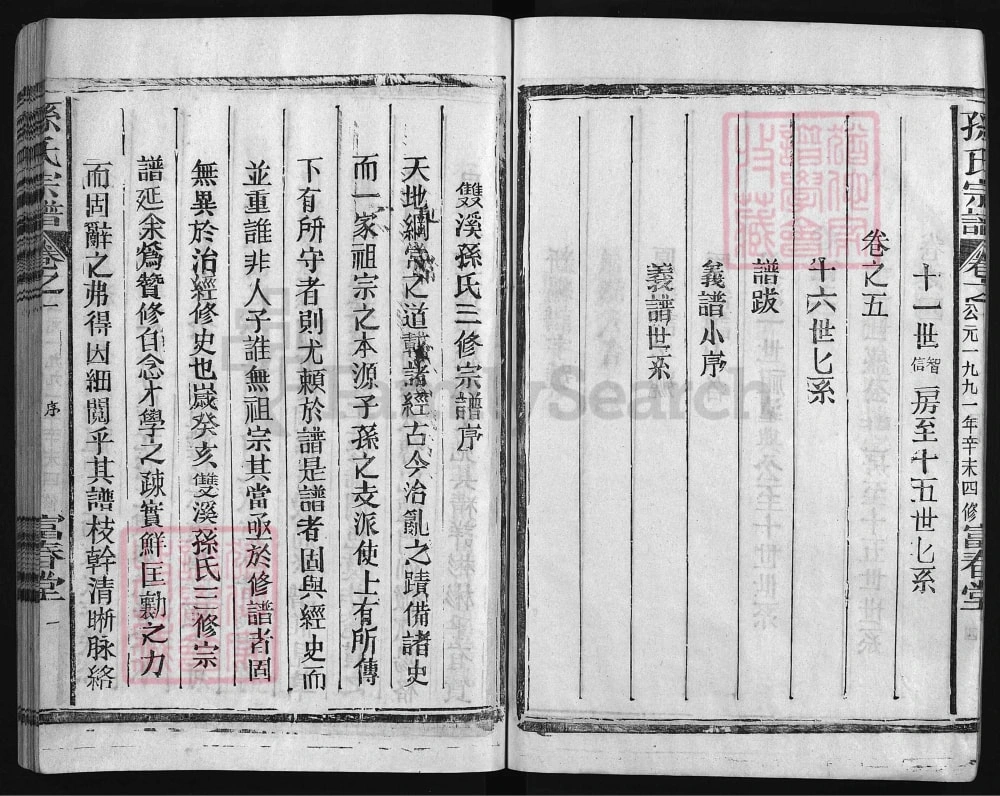 孫氏宗譜
卷之
公元一九九一年辛未四修
富春堂
四
十一世智信房至十五世匕系
卷之五
十六世匕系
譜跋
義譜小序
義譜世系
雙溪孫氏三修宗譜序
天地綱常之道載諸經古今治亂之蹟備諸史
而一家祖宗之本源子孫之支派使上有所傳
下有所守者則尤賴於譜是譜者固與經史而
並重誰非人子誰無祖宗其當亟於修譜者固
無異於治經修史也歲癸亥雙溪孫氏三修宗
譜延余爲贊修自念才學之疎實鮮匡勷之力
而固辭之弗得因細閱乎其譜枝幹清晣脉絡
孫氏宗譜
卷之一
序
富春堂
一
FamilySearch